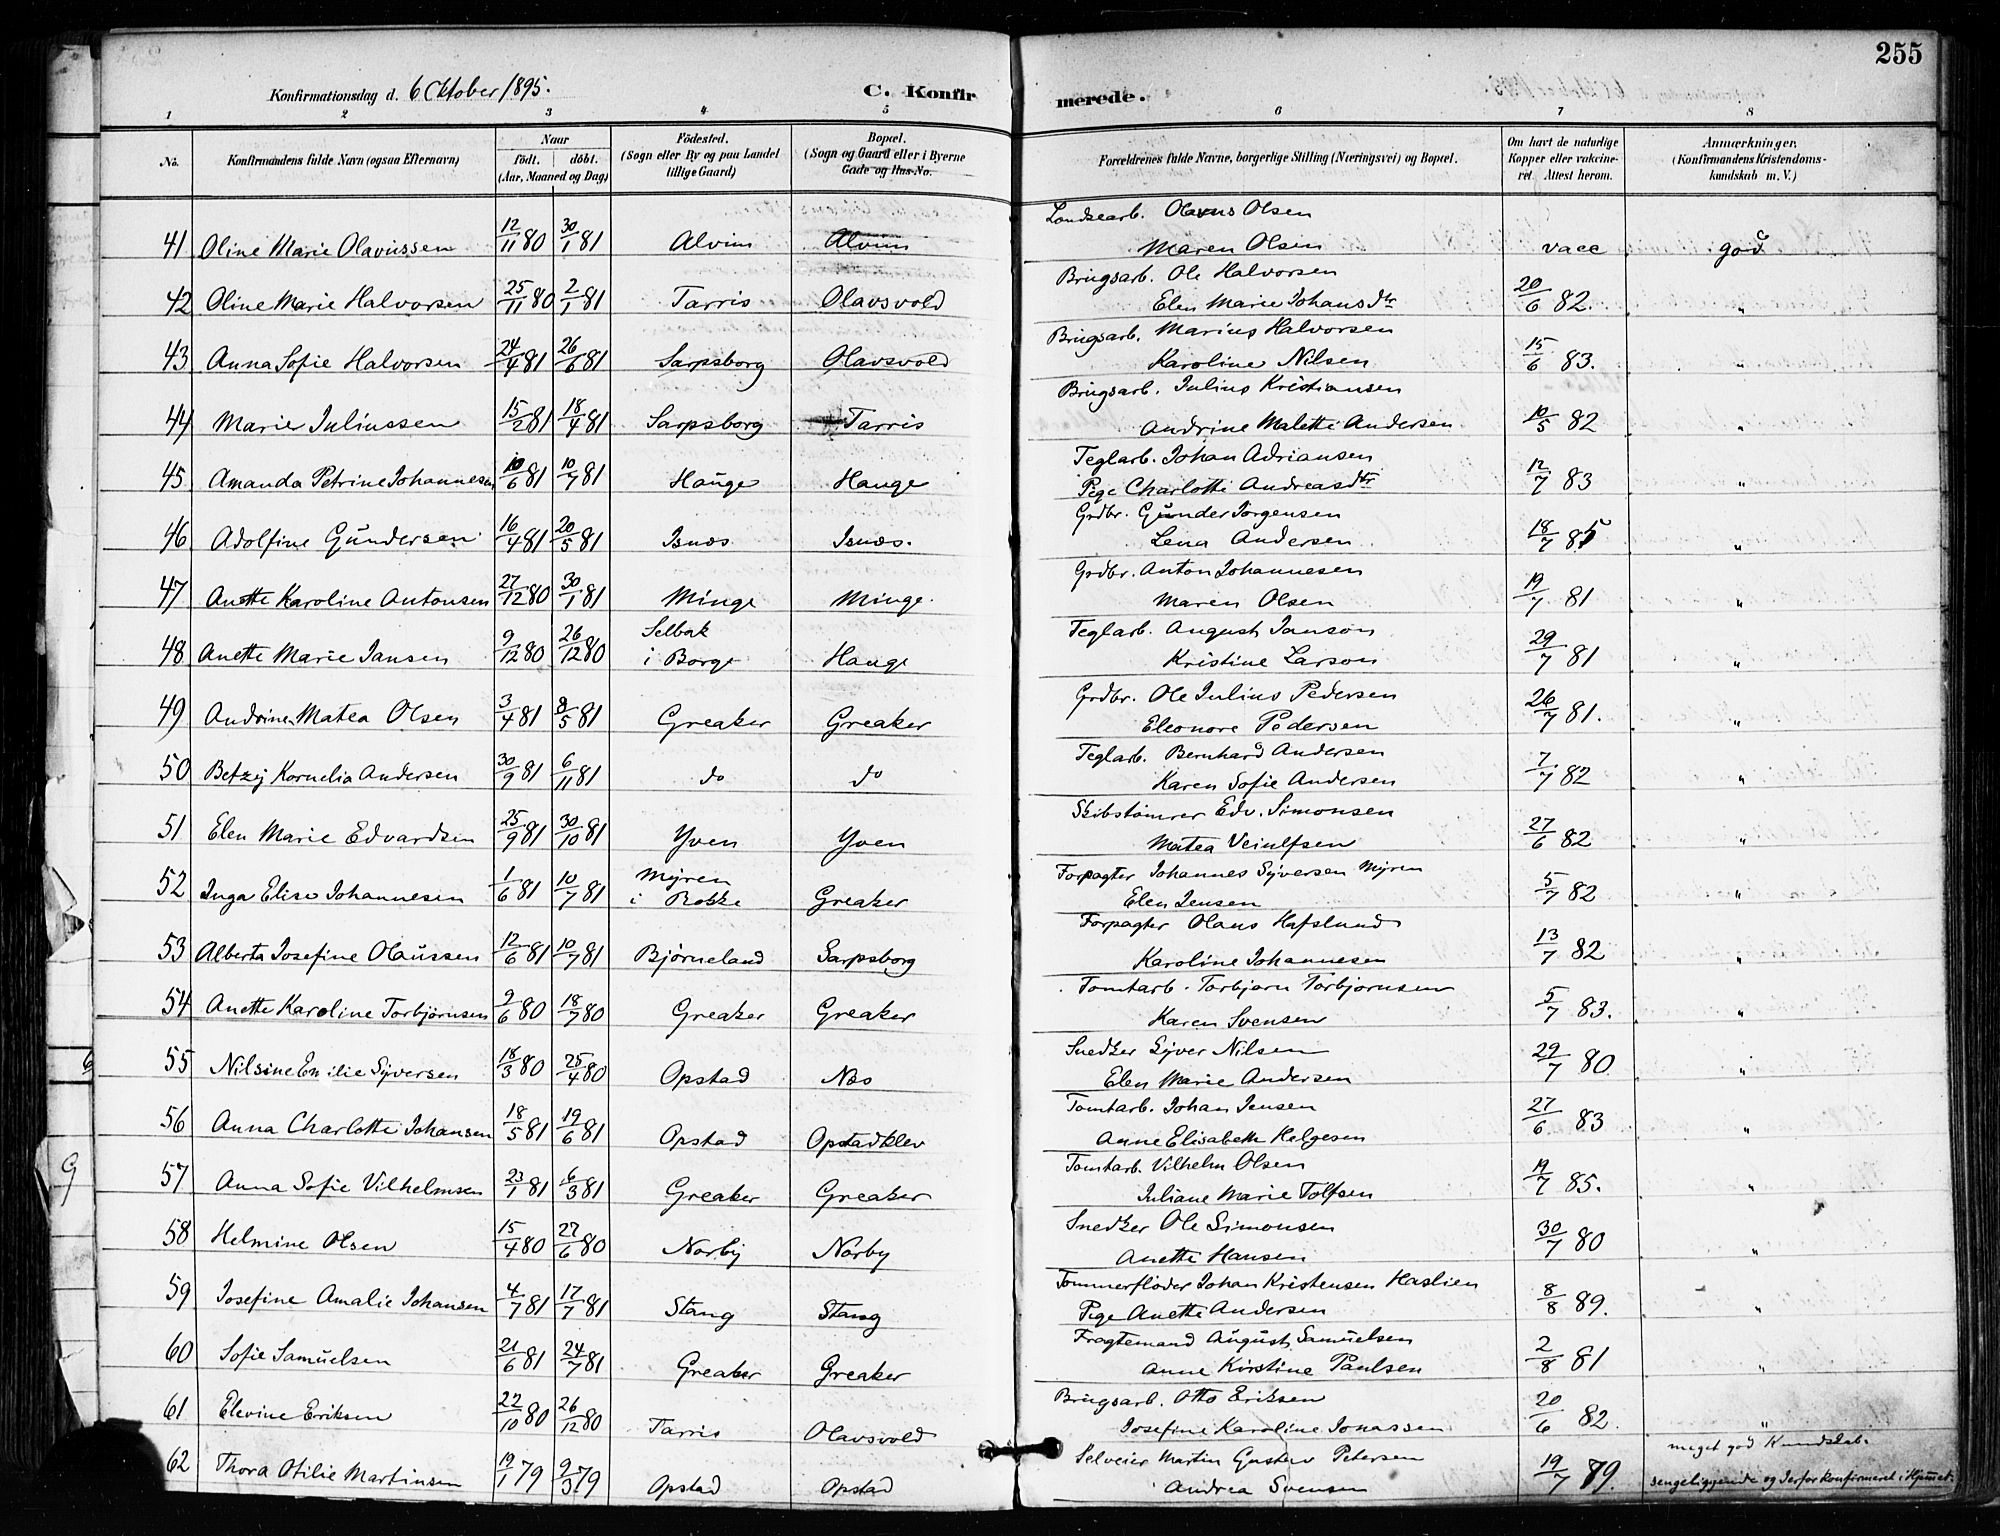 255
Konfirmationsdag d. 6 Oktober 1895.
C. Konfirmerede.
1 2 3 4 5 6 7 8
No. Konfirmandens fulde Navn (ogsaa Efternavn) Naar født. døbt. (Aar, Maaned og Dag) Fødested. (Sogn eller By og paa Landet tillige Gaard) Bopæl. (Sogn og Gaard eller i Byerne Gade og Hus-No. Forældrenes fulde Navne, borgerlige Stilling (Næringsvei) og Bopæl. Om havt de naturlige Kopper eller vakcineret. Attest herom. Anmærkninger. (Konfirmandens Kristendomskundskab m. V.)
41 Oline Marie Olavussen 12/11 80 30/1 81 Alvim Alvim Landsearb. Olavus Olsen
Maren Olsen vacc god
42 Oline Marie Halvorsen 25/11 80 2/1 81 Tarris Olavsvold Brugsarb. Ole Halvorsen
Elen Marie Johansdtr 20/6 82. "
43 Anna Sofie Halvorsen 24/4 81 26/6 81 Sarpsborg Olavsvold Brugsarb. Marius Halvorsen
Karoline Nilsen 15/6 83. "
44 Marie Juliussen 15/2 81 18/4 81 Sarpsborg Tarris Brugsarb. Julius Kristiansen
Andrine Malette Andersen 10/5 82 "
45 Amanda Petrine Johannesen 10/6 81 10/7 81 Hauge Hauge Teglarb. Johan Adriansen
Pige Charlotte Andreasdtr 12/7 83 "
46 Adolfine Gundersen 16/4 81 20/5 81 Isnæs Isnæs. Grdbr. Gunder Jørgensen
Lena Andersen 18/7 85 "
47 Anette Karoline Antonsen 27/12 80 30/1 81 Minge Minge. Grdbr. Anton Johannesen
Maren Olsen 19/7 81 "
48 Anette Marie Jansen 9/12 80 26/12 80 Selbak i Borge Hauge Teglarb. August Janson
Kristine Larson 29/7 81 "
49 Andrine Matea Olsen 3/4 81 8/5 81 Greaker Greaker Grdbr. Ole Julius Pedersen
Eleonore Pedersen 26/7 81. "
50 Betzy Kornelia Andersen 30/9 81 6/11 81 do do Teglarb. Bernhard Andersen
Karen Sofie Andersen 7/7 82 "
51 Elen Marie Edvardsen 25/9 81 30/10 81 Yven Yven Skibstømrer Edv. Simonsen
Matea Veiulfsen 27/6 82 "
52 Inga Elise Johannesen 1/6 81 10/7 81 Myren i Rokke Greaker Forpagter Johannes Syversen Myren
Elen Jensen 5/7 82 "
53 Alberta Josefine Olaussen 12/6 81 10/7 81 Bjørneland Sarpsborg Forpagter Olaus Hafslund
Karoline Johannesen 13/7 82 "
54 Anette Karoline Torbjørnsen 9/6 80 18/7 80 Greaker Greaker Tomtarb. Torbjørn Torbjørnsen
Karen Svensen 5/7 83. "
55 Nilsine Emilie Syversen 18/3 80 25/4 80 Opstad Næs Snedker Syver Nilsen
Elen Marie Andersen 29/7 80 "
56 Anna Charlotte Johansen 18/5 81 19/6 81 Opstad Opstadklev Tomtarb. Johan Jensen
Anne Elisabeth Helgesen 27/6 83 "
57 Anna Sofie Vilhelmsen 23/1 81 6/3 81 Greaker Greaker Tomtarb. Vilhelm Olsen
Juliane Marie Tolfsen 19/7 85. "
58 Helmine Olsen 15/4 80 27/6 80 Norby Norby Snedker Ole Simonsen
Anette Hansen 30/7 80 "
59 Josefine Amalie Johansen 4/7 81 17/7 81 Stang Stang Tømmerfløder Johan Kristensen Haslien
Pige Anette Andersen 8/8 89. "
60 Sofie Samuelsen 21/6 81 24/7 81 Greaker Greaker Fragtemand August Samuelsen
Anne Kirstine Paulsen 2/8 81 "
61 Elevine Eriksen 22/10 80 26/12 80 Tarris Olavsvold Brugsarb. Otto Eriksen
Josefine Karoline Jonassen 20/6 82. "
62 Thora Otilie Martinsen 19/1 79 9/3 79 Opstad Opstad Selveier Martin Gustav Petersen
Andrea Svensen 19/7 79. meget god Kundskab.
sengeliggende og derfor konfirmeret i Hjemmet.